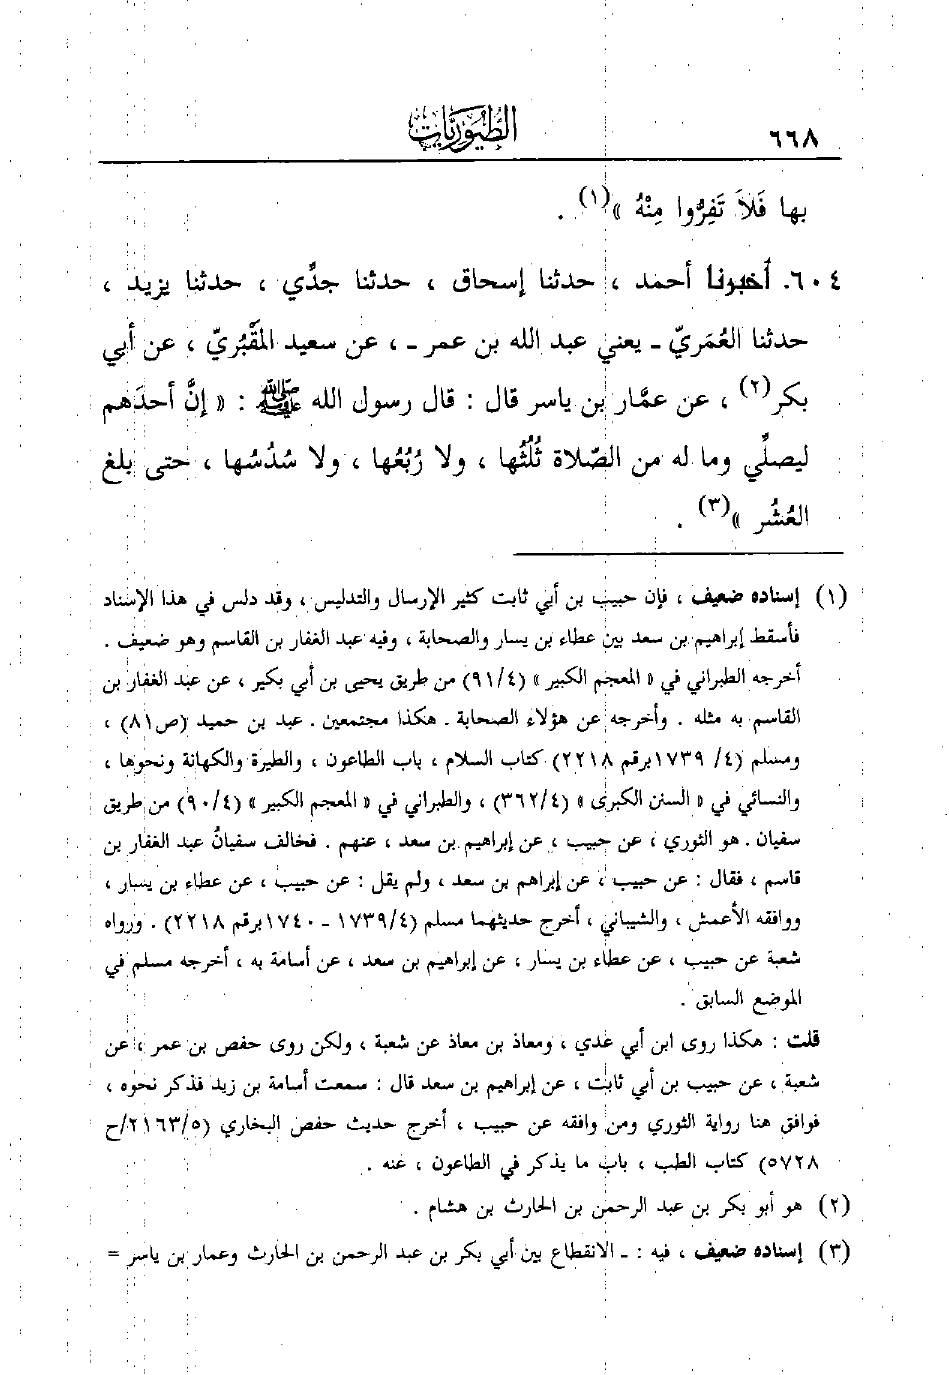 ٦٦٨
الطُّيُورِيَّات
بها فَلاَ تَفِرُّوا مِنْهُ »(١) .
٦٠٤. أخبرنا أحمد ، حدثنا إسحاق ، حدثنا جدِّي ، حدثنا يزيد ،
حدثنا العُمَريّ ـ يعني عبد الله بن عمر ـ ، عن سعيد المَقْبُريّ ، عن أبي
بكر(٢) ، عن عمَّار بن ياسر قال : قال رسول الله ﷺ : « إنَّ أحدَهم
ليصلِّي وما له من الصّلاة ثُلُثُها ، ولا رُبُعُها ، ولا سُدُسُها ، حتى بلغ
العُشُر »(٣) .
(١) إسناده ضعيف ، فإن حبيب بن أبي ثابت كثير الإرسال والتدليس ، وقد دلس في هذا الإسناد
فأسقط إبراهيم بن سعد بين عطاء بن يسار والصحابة ، وفيه عبد الغفار بن القاسم وهو ضعيف .
أخرجه الطبراني في « المعجم الكبير » (٩١/٤) من طريق يحيى بن أبي بكير ، عن عبد الغفار بن
القاسم به مثله . وأخرجه عن هؤلاء الصحابة ـ هكذا مجتمعين ـ عبد بن حميد (ص٨١) ،
ومسلم (٤/ ١٧٣٩برقم ٢٢١٨) كتاب السلام ، باب الطاعون ، والطيرة والكهانة ونحوها ،
والنسائي في « السنن الكبرى » (٣٦٢/٤) ، والطبراني في « المعجم الكبير » (٩٠/٤) من طريق
سفيان ـ هو الثوري ، عن حبيب ، عن إبراهيم بن سعد ، عنهم . فخالف سفيانُ عبد الغفار بن
قاسم ، فقال : عن حبيب ، عن إبراهم بن سعد ، ولم يقل : عن حبيب ، عن عطاء بن يسار ،
ووافقه الأعمش ، والشيباني ، أخرج حديثهما مسلم (١٧٣٩/٤ ـ ١٧٤٠برقم ٢٢١٨) . ورواه
شعبة عن حبيب ، عن عطاء بن يسار ، عن إبراهيم بن سعد ، عن أسامة به ، أخرجه مسلم في
الموضع السابق .
قلت : هكذا روى ابن أبي عدي ، ومعاذ بن معاذ عن شعبة ، ولكن روى حفص بن عمر ، عن
شعبة ، عن حبيب بن أبي ثابت ، عن إبراهيم بن سعد قال : سمعت أسامة بن زيد فذكر نحوه ،
فوافق هنا رواية الثوري ومن وافقه عن حبيب ، أخرج حديث حفص البخاري (٢١٦٣/٥/ح
٥٧٢٨) كتاب الطب ، باب ما يذكر في الطاعون ، عنه .
(٢) هو أبو بكر بن عبد الرحمن بن الحارث بن هشام .
(٣) إسناده ضعيف ، فيه : ـ الانقطاع بين أبي بكر بن عبد الرحمن بن الحارث وعمار بن ياسر =